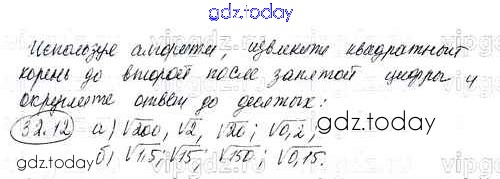 gdz.today
Используя алгоритм, извлеките квадратный
корень до второй после запятой цифры и
округлите ответ до десятых:
32.12 а) √200, √2, √20; √0,2;
gdz.today
б) √1,5; √15; √150; √0,15.
gdz.today